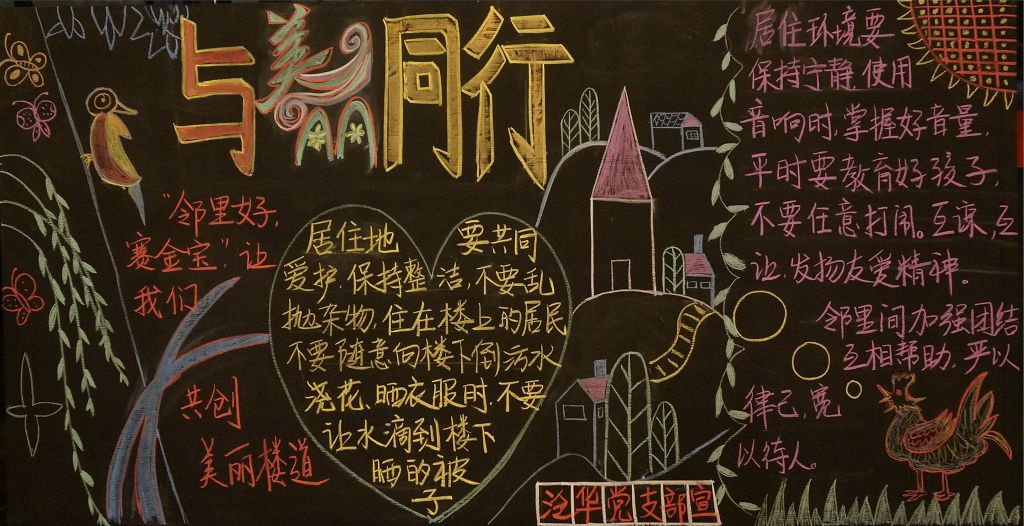 与美同行
"邻里好,
赛金宝",让
我们
共创
美丽楼道
居住地 要共同
爱护,保持整洁,不要乱
抛杂物,住在楼上的居民
不要随意向楼下倒污水
浇花、晒衣服时,不要
让水滴到楼下
晒的被
子
居住环境要
保持宁静,使用
音响时,掌握好音量,
平时要教育好孩子,
不要任意打闹。互谅,互
让,发扬友爱精神。
邻里间加强团结
互相帮助,严以
律己,宽
以待人。
华党支部宣